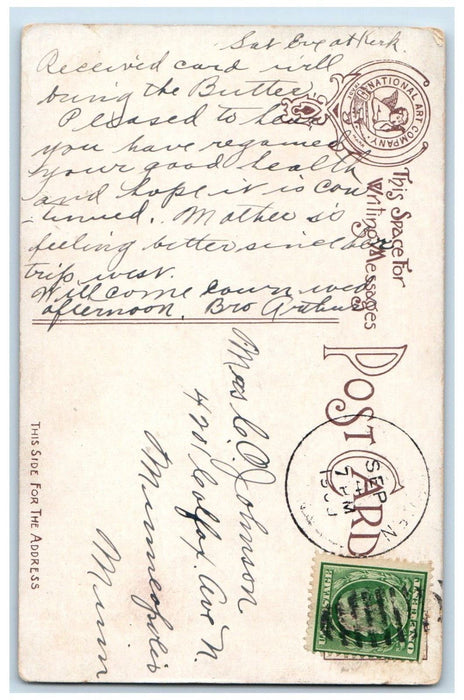 Sat Eve at Kerk.
Received card will
bring the Butter.
Pleased to hear
you have regained
your good health
and hope it is con
tinued. Mother is
feeling better since her
trip west.
Will come down wed
afternoon. Bro Arthur
NATIONAL ART COMPANY
This Space For
Writing Messages
POST CARD
THIS SIDE FOR THE ADDRESS
Mrs C. Johnson
Colfax Ave N.
Minneapolis
Minn
SEP
7 PM
POSTAGE